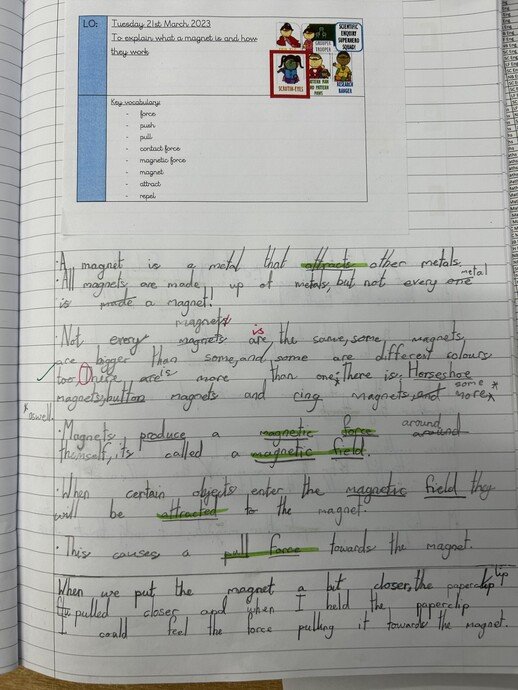 LO:
Tuesday 21st March 2023
To explain what a magnet is and how
they work
SCIENTIFIC
ENQUIRY
SUPERHERO
SQUAD!
GROUPER
TROOPER
SCRUTIN-EYES
PATTERN MAN
AND PATTERN
PAWS
RESEARCH
RANGER
Key vocabulary:
- force
- push
- pull
- contact force
- magnetic force
- magnet
- attract
- repel
· A magnet is a metal that attracts other metals.
· All magnets are made up of metals, but not every one metal
is made a magnet!
magnets
· Not every magnets are is the same, some magnets
are bigger than some, and some are different colours
too, there are is more than one; there is Horseshoe
magnets, button magnets and ring magnets, and some more*
*aswell.
· Magnets produce a magnetic force around around
themself, its called a magnetic field.
· When certain objects enter the magnetic field they
will be attracted to the magnet.
· This causes a pull force towards the magnet.
When we put the magnet a bit closer, the paperclip clip
pulled closer and when I held the paperclip
I could feel the force pulling it towards the magnet.